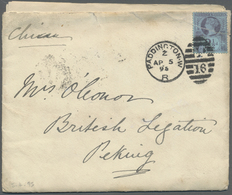 China
PADDINGTON.W
Z
AP 5
94
R
16
Mrs O'Conor
British Legation
Peking